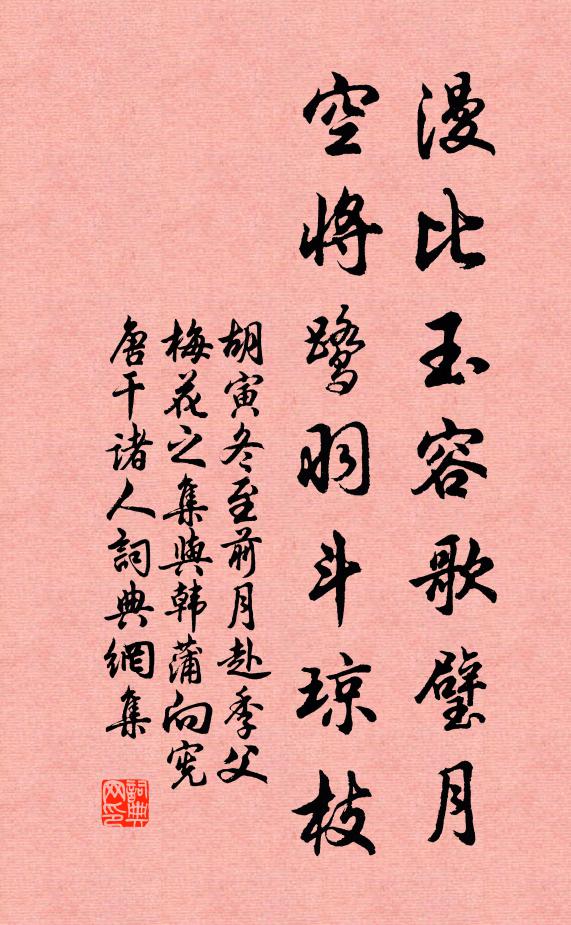 漫比玉容歌璧月
空将鹭羽斗琼枝
胡寅冬至前月赴季父
梅花之集與韩蒲向宪
唐干诸人詞典網集
詞典網印